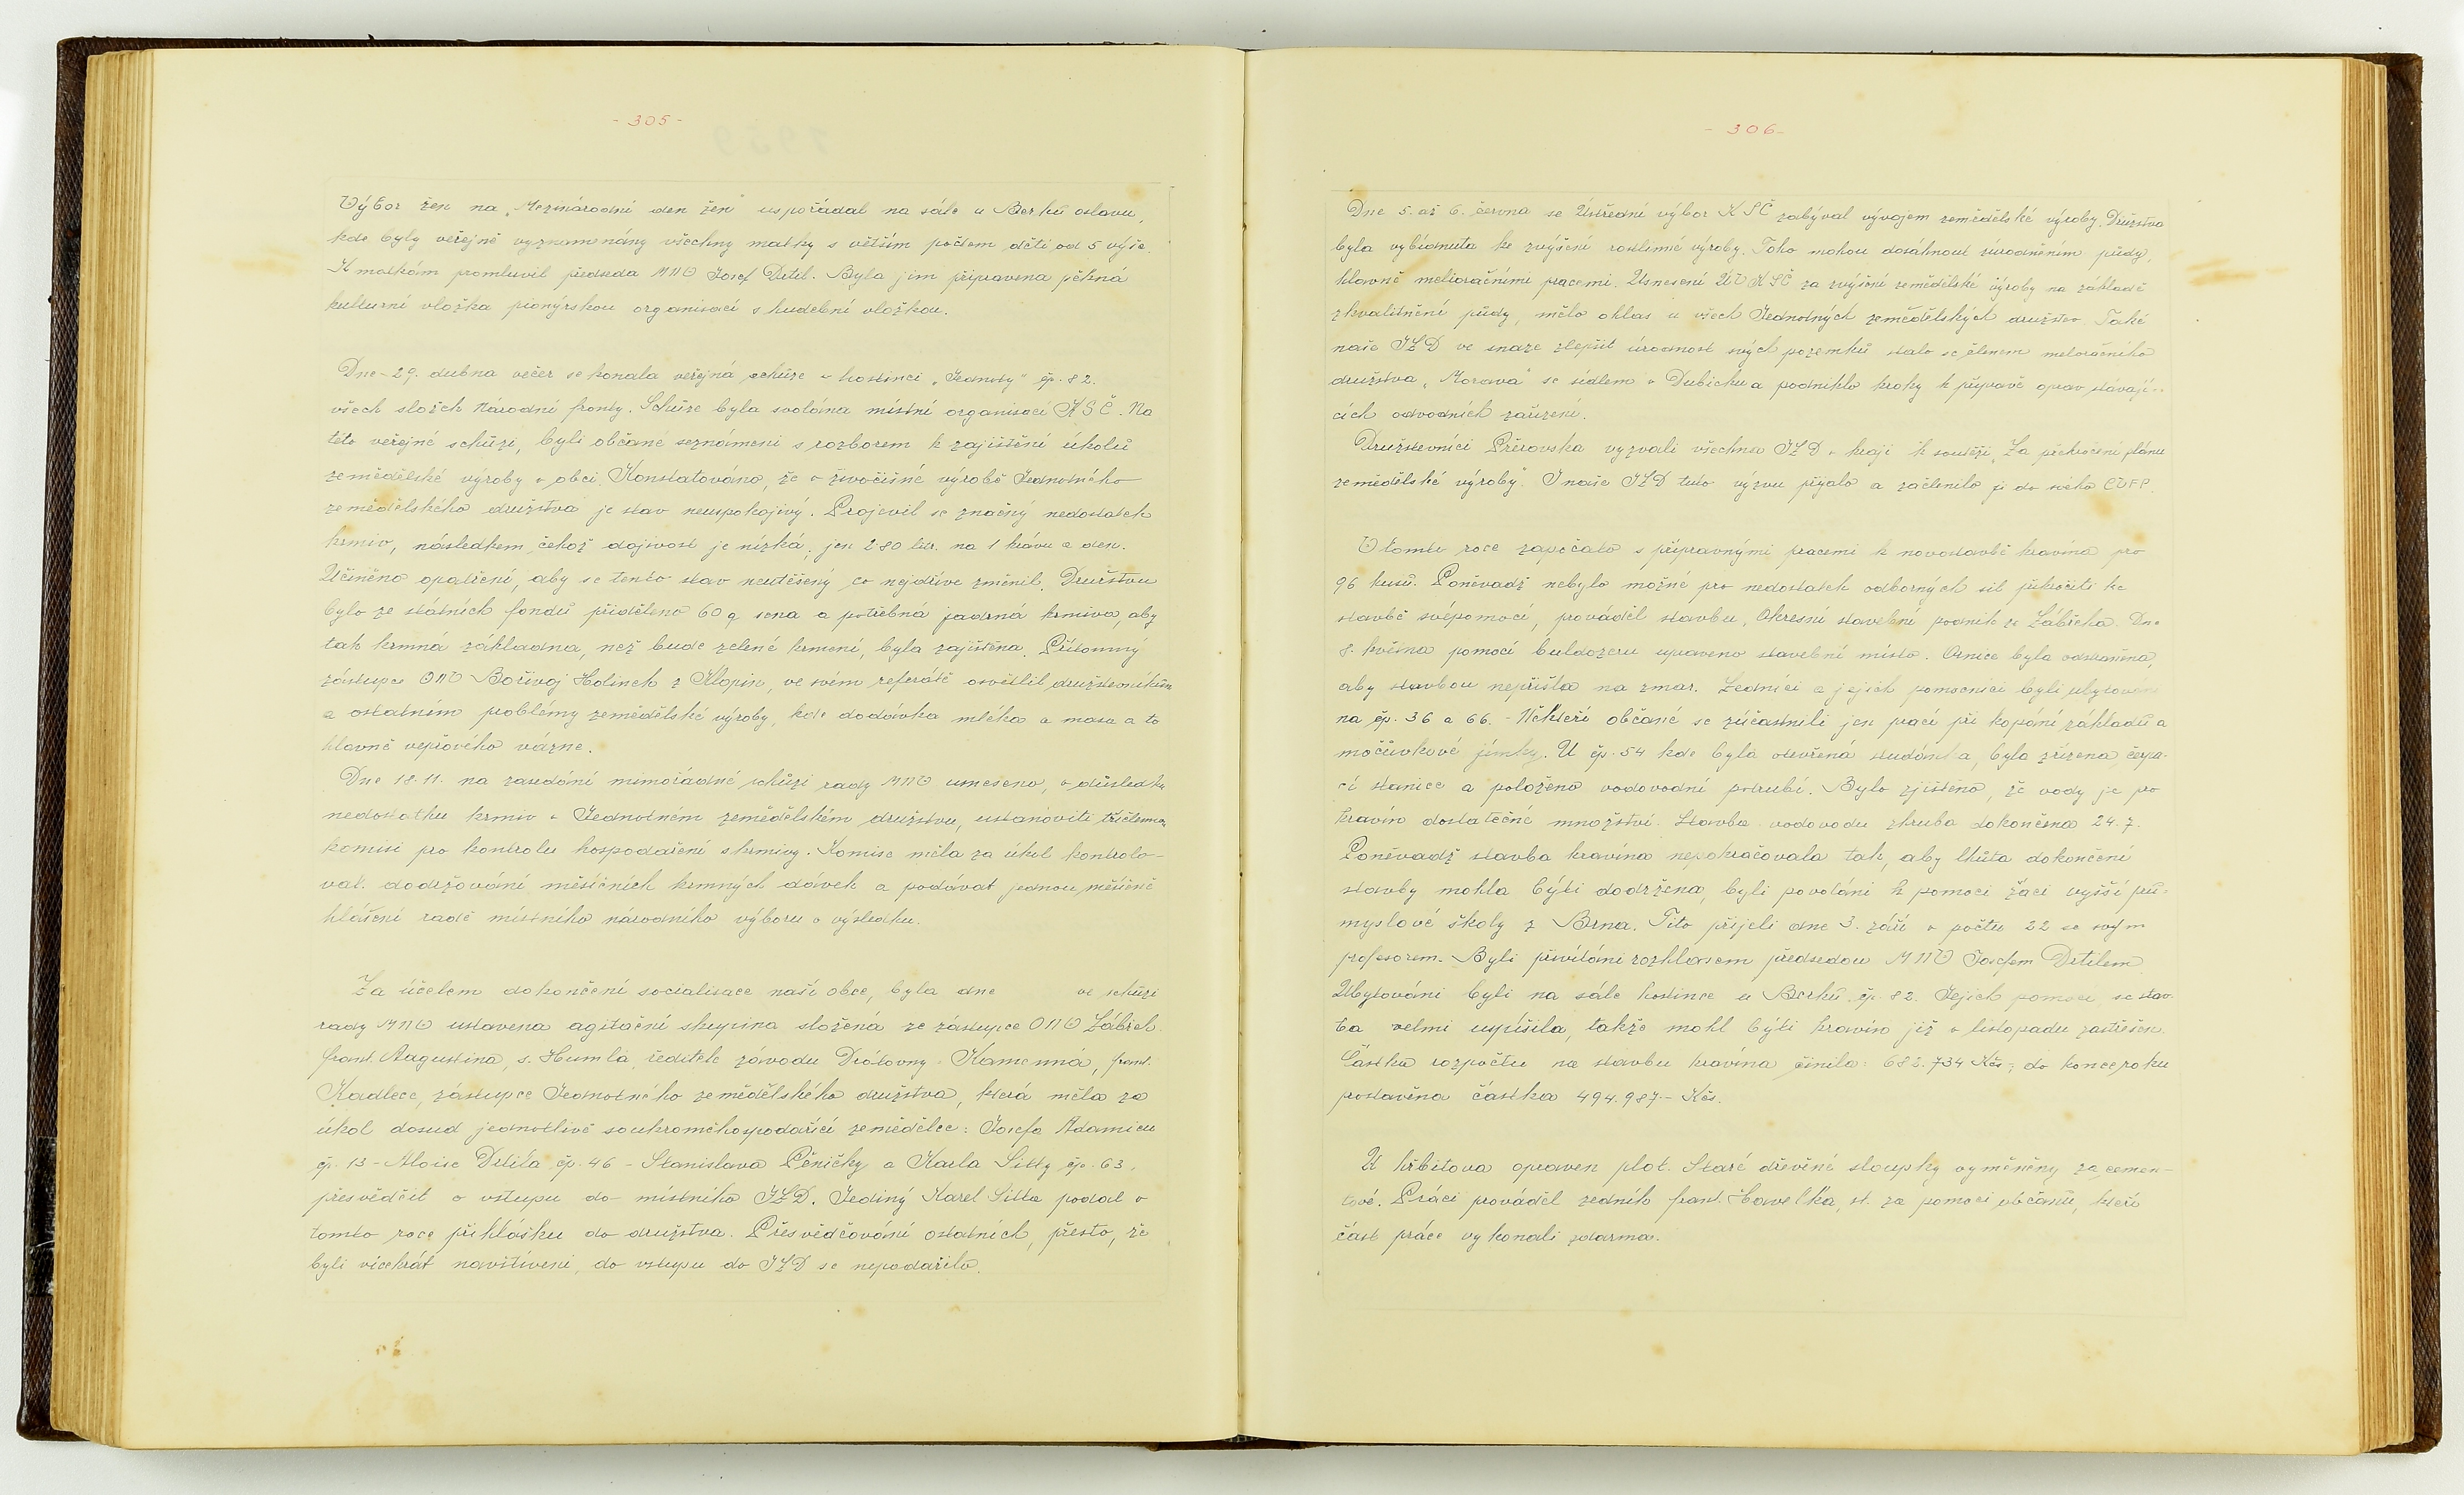 - 305 -
Výbor žen na „Mezinárodní den žen" uspořádal na sále u Berků oslavu,
kde byly veřejně vyznamenány všechny matky s větším počtem dětí od 5 výše.
K matkám promluvil předseda MNV Josef Drtil. Byla jim připravena pěkná
kulturní vložka pionýrskou organisací s hudební vložkou.
Dne 29. dubna večer se konala veřejná schůze v hostinci „Jednoty" čp. 82.
všech složek Národní fronty. Schůze byla svolána místní organisací KSČ. Na
této veřejné schůzi, byli občané seznámeni s rozborem k zajištění úkolů
zemědělské výroby v obci. Konstatováno, že v živočišné výrobě Jednotného
zemědělského družstva je stav neuspokojivý. Projevil se značný nedostatek
krmiv, následkem čehož dojivost je nízká, jen 2·80 litr. na 1 krávu a den.
Učiněno opatření, aby se tento stav neutěšený co nejdříve změnil. Družstvu
bylo ze státních fondů přiděleno 60 q sena a potřebná jadrná krmiva, aby
tak krmná základna, než bude zelené krmení, byla zajištěna. Přítomný
zástupce ONV Bořivoj Holinek z Klopin, ve svém referátě osvětlil družstevníkům
a ostatním problémy zemědělské výroby, kde dodávka mléka a masa a to
hlavně vepřového vázne.
Dne 18.11. na zasedání mimořádné schůzi rady MNV usneseno, v důsledku
nedostatku krmiv v Jednotném zemědělském družstvu, ustanoviti tříčlennou
komisi pro kontrolu hospodaření s krmivy. Komise měla za úkol kontrolo-
vat dodržování měsíčních krmných dávek a podávat jednou měsíčně
hlášení radě místního národního výboru o výsledku.
Za účelem dokončení socialisace naší obce, byla dne ve schůzi
rady MNV ustavena agitační skupina složená ze zástupce ONV Zábřeh
frant. Augustina, s. Humla, ředitele závodu Drátovny - Kamenná, frant.
Kadlece, zástupce Jednotného zemědělského družstva, která měla za
úkol dosud jednotlivě soukroměhospodařící zemědělce: Josefa Adamicu
čp. 13 - Aloise Drtila čp. 46 - Stanislava Pěničky a Karla Sitty čp. 63,
přesvědčit o vstupu do místního JZD. Jediný Karel Sitta podal v
tomto roce přihlášku do družstva. Přesvědčování ostatních, přesto, že
byli vícekrát navštíveni, do vstupu do JZD se nepodařilo.
- 306 -
Dne 5. až 6. června se Ústřední výbor KSČ zabýval vývojem zemědělské výroby. Družstva
byla vybídnuta ke zvýšení rostlinné výroby. Toho mohou dosáhnout zúrodněním půdy,
hlavně melioračními pracemi. Usnesení ÚV KSČ za zvýšení zemědělské výroby na základě
zkvalitnění půdy, mělo ohlas u všech Jednotných zemědělských družstev. Také
naše JZD ve snaze zlepšit úrodnost svých pozemků stalo se členem melioračního
družstva „Morava" se sídlem v Dubicku a podniklo kroky k přípravě oprav stávají-
cích odvodních zařízení.
Družstevníci Přerovska vyzvali všechna JZD v kraji k soutěži „Za překročení plánu
zemědělské výroby". I naše JZD tuto výzvu přijalo a začlenilo ji do svého CVFP.
V tomto roce započato s přípravnými pracemi k novostavbě kravína pro
96 kusů. Poněvadž nebylo možné pro nedostatek odborných sil přikročiti ke
stavbě svépomocí, prováděl stavbu, Okresní stavební podnik ze Zábřeha. Dne
8. května pomocí buldozeru upraveno stavební místo. Ornice byla odstraněna,
aby stavbou nepřišla na zmar. Zedníci a jejich pomocníci byli ubytováni
na čp. 36 a 66. - Někteří občané se zúčastnili jen prací při kopání základů a
močůvkové jímky. U čp. 54 kde byla otevřená studánka, byla zřízena čerpa-
cí stanice a položeno vodovodní potrubí. Bylo zjištěno, že vody je pro
kravín dostatečné množství. Stavba vodovodu zhruba dokončena 24.7.
Poněvadž stavba kravína nepokračovala tak, aby lhůta dokončení
stavby mohla býti dodržena, byli povoláni k pomoci žáci vyšší prů-
myslové školy z Brna. Tito přijeli dne 3. září v počtu 22 se svým
profesorem. Byli přivítáni rozhlasem předsedou MNV Josefem Drtilem
Ubytováni byli na sále hostince u Berků čp. 82. Jejich pomocí se stav-
ba velmi uspíšila, takže mohl býti kravín již v listopadu zastřešen.
Částka rozpočtu na stavbu kravína činila: 682.734 Kčs, do konce roku
prostavěna částka 494.987.- Kčs.
U hřbitova opraven plot. Staré dřevěné sloupky vyměněny za cemen-
tové. Práci prováděl zedník frant. Havelka, st. za pomoci občanů, kteří
část práce vykonali zdarma.